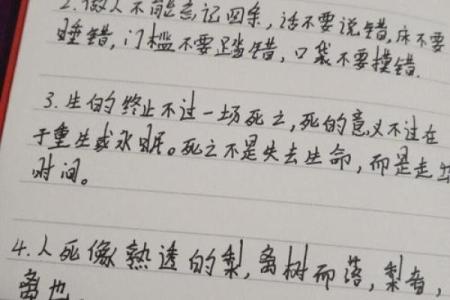 2.做人不可忘记四条,话不要说错,床不要
睡错,门槛不要踏错,口袋不要摸错.
3.生的终止不过一场死亡,死的意义不过在
于重生或永眠。死亡不是失去生命,而是走出
时间。
4.人死像熟透的梨,离树而落,梨者,
离也.